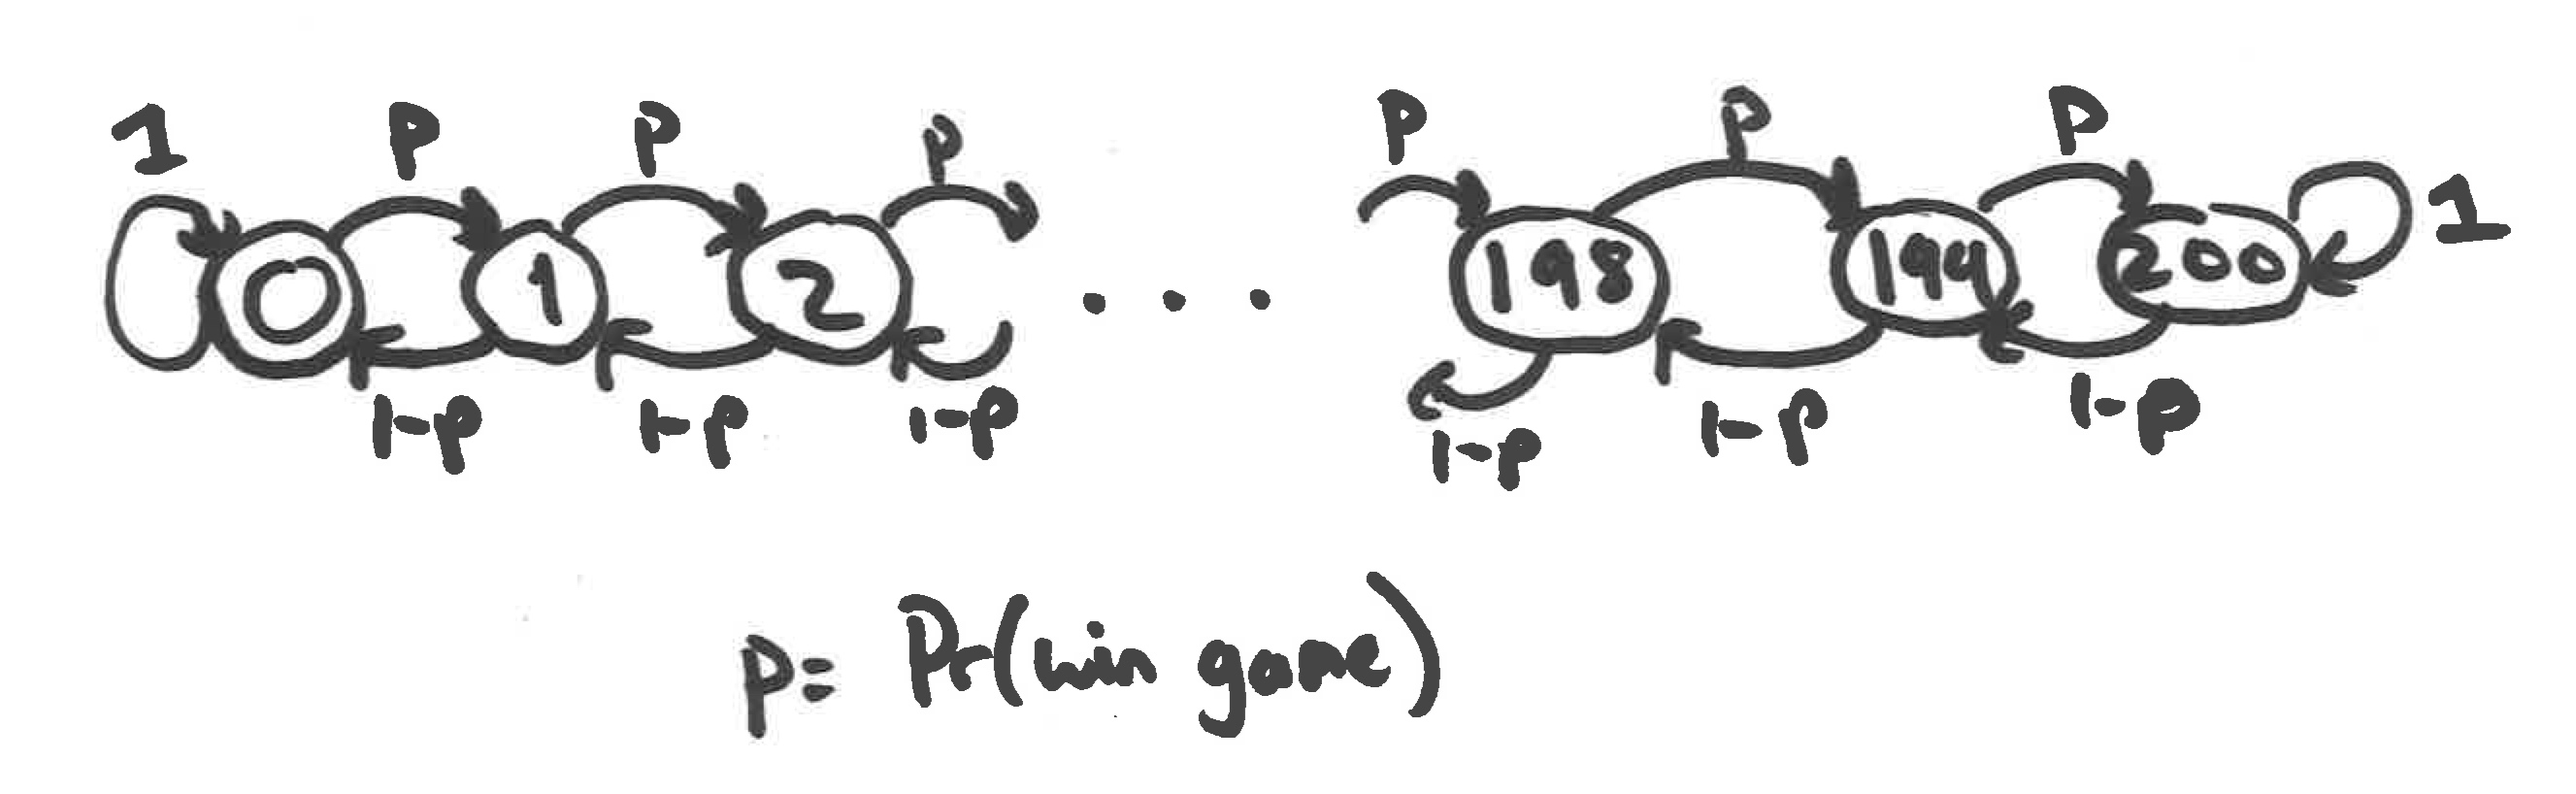 1 P P P P P P 1
0 1 2 ... 198 199 200
1-P 1-P 1-P 1-P 1-P 1-P
P= Pr(win game)